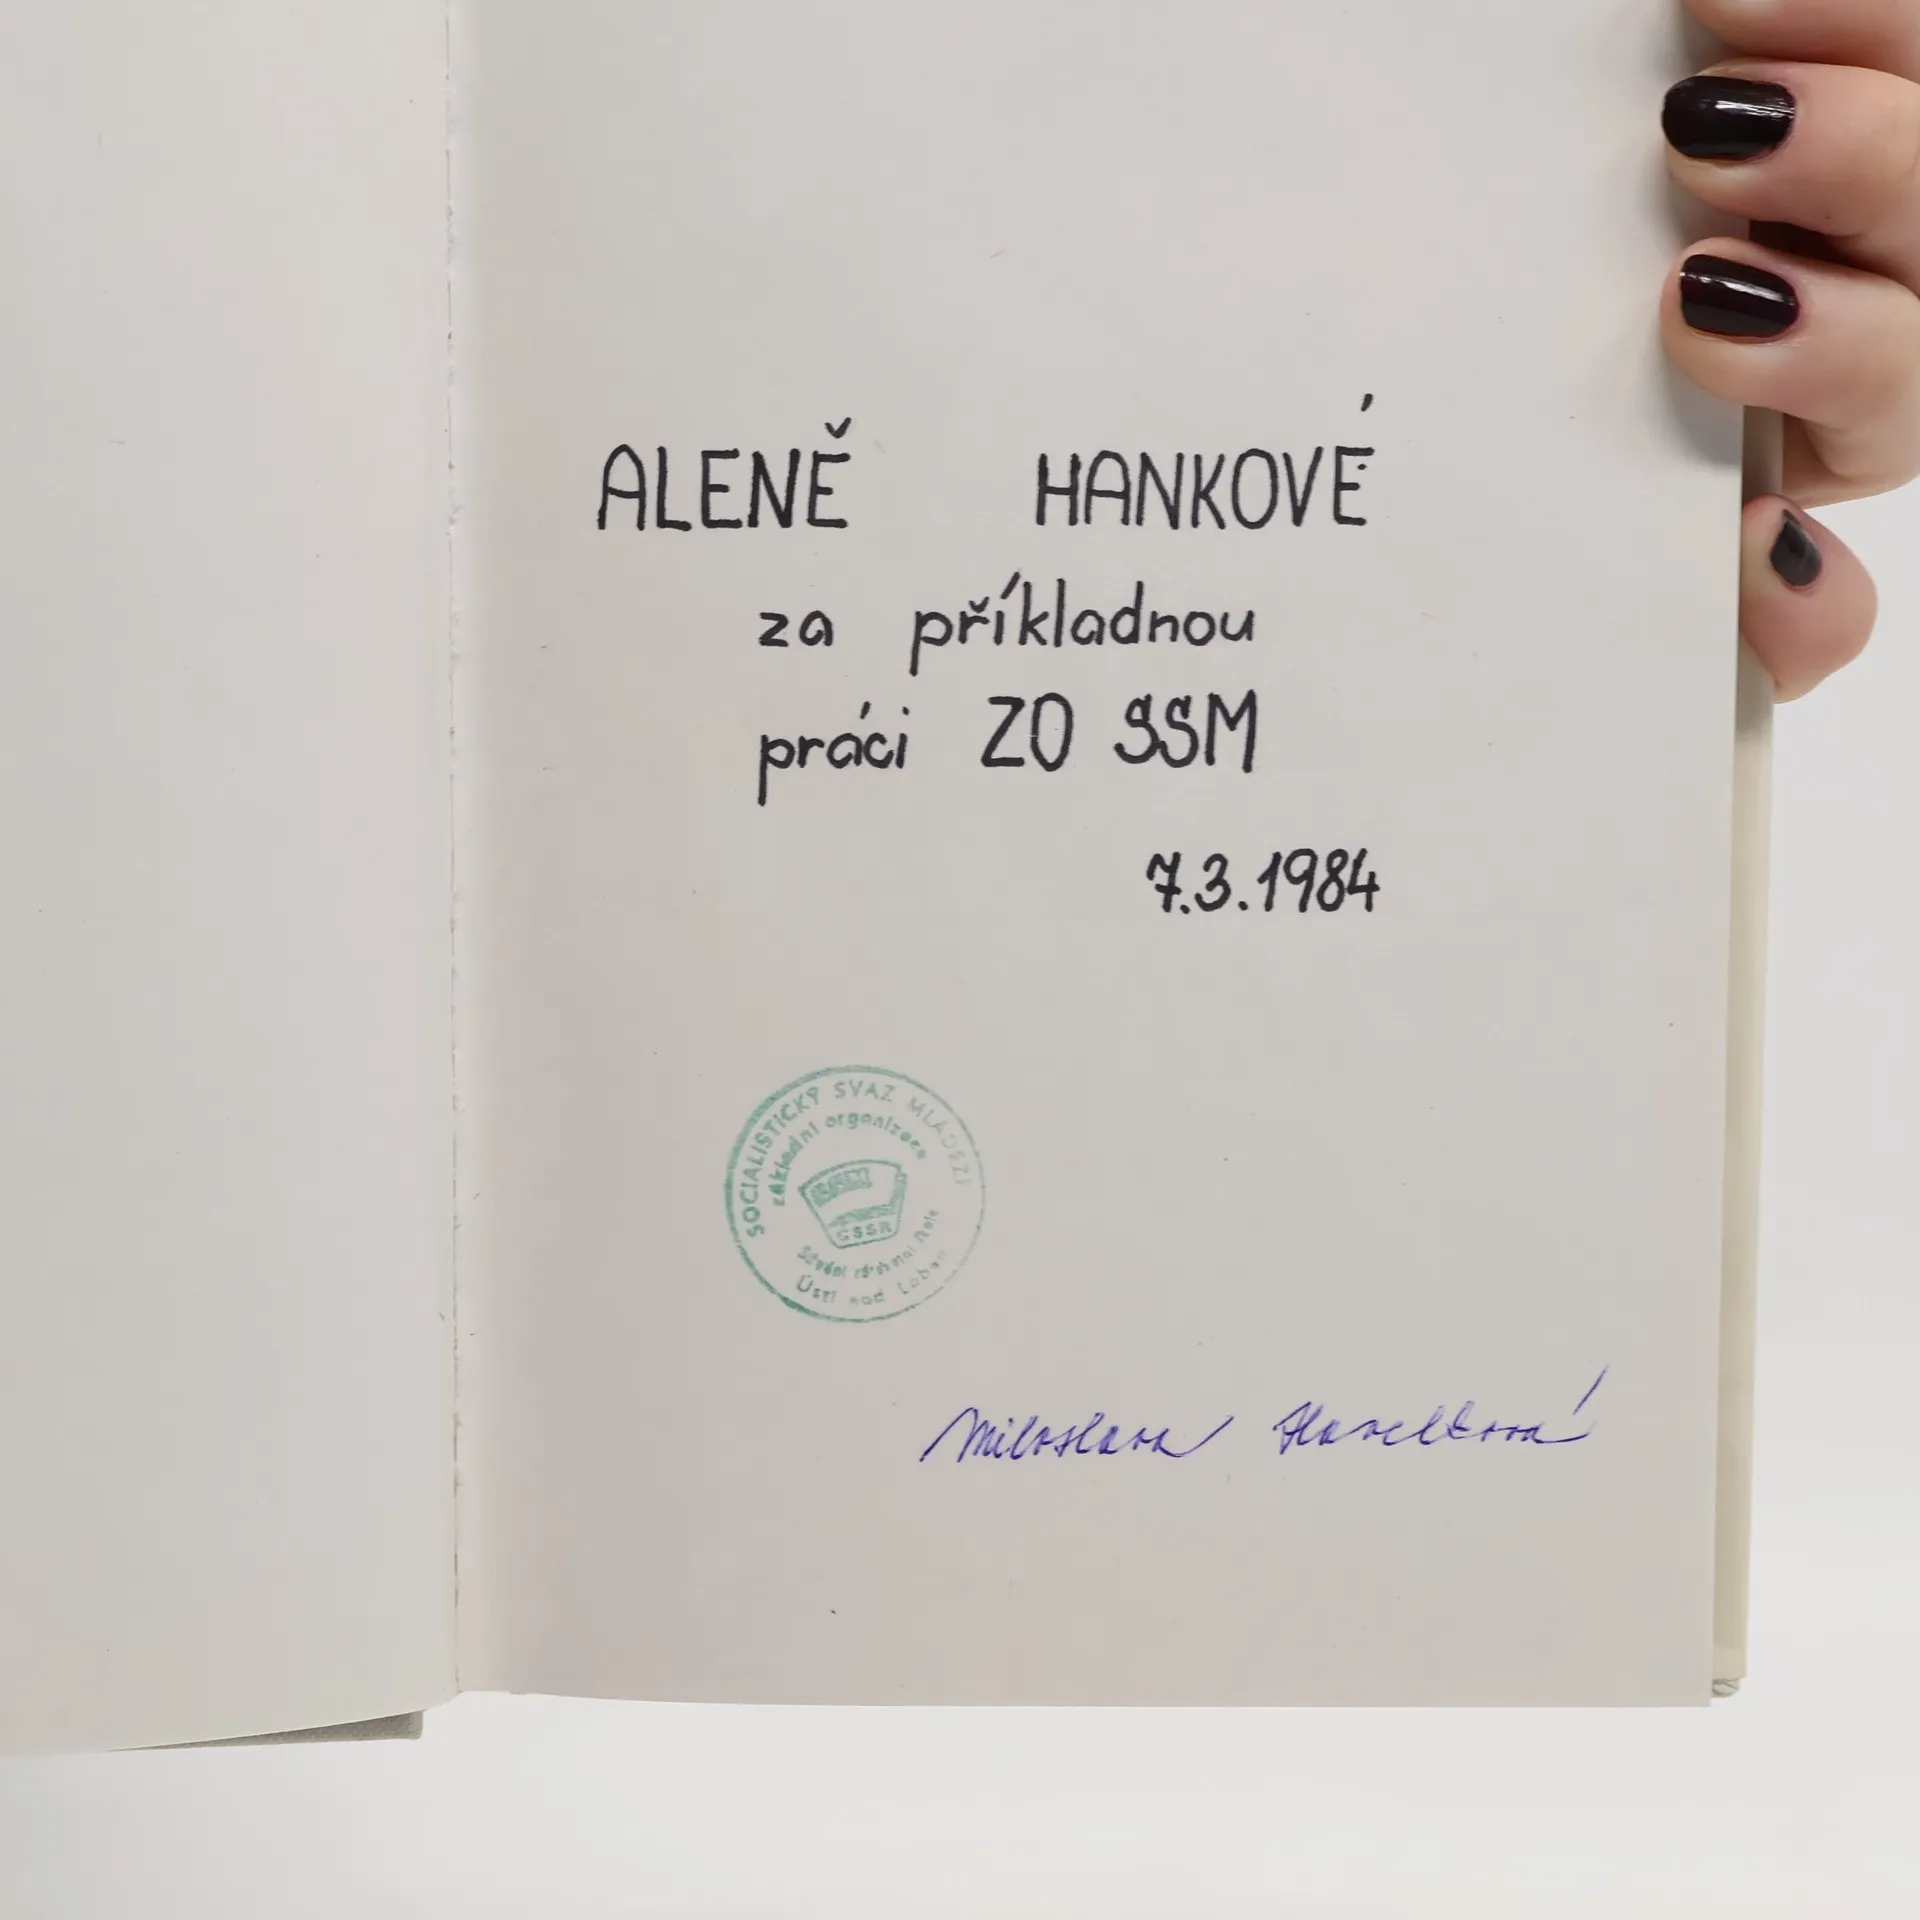 ALENĚ HANKOVÉ
za příkladnou
práci ZO SSM
7.3.1984
SOCIALISTICKÝ SVAZ MLÁDEŽE
základní organizace
ČSSR
Střední
Ústí nad Labem
Miloslava Havelková